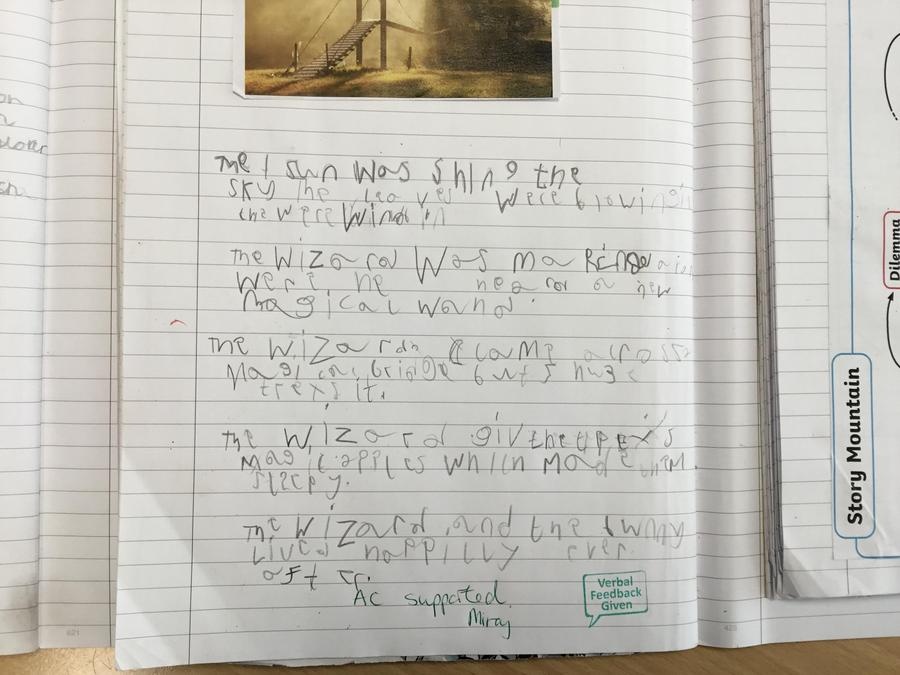 The sun was shing the
sky the leaves were blowing in
the were wind in
the Wizard Was ma
were he near a new
magical wand.
The Wizard came across
Magical bridge but 5 huge
trexs it.
The Wizard giv the trex's
magic apples which made them
sleepy.
The Wizard and the
Lived happilly ever
after.
AC supported.
Miray
Verbal
Feedback
Given
Story Mountain
Dilemma